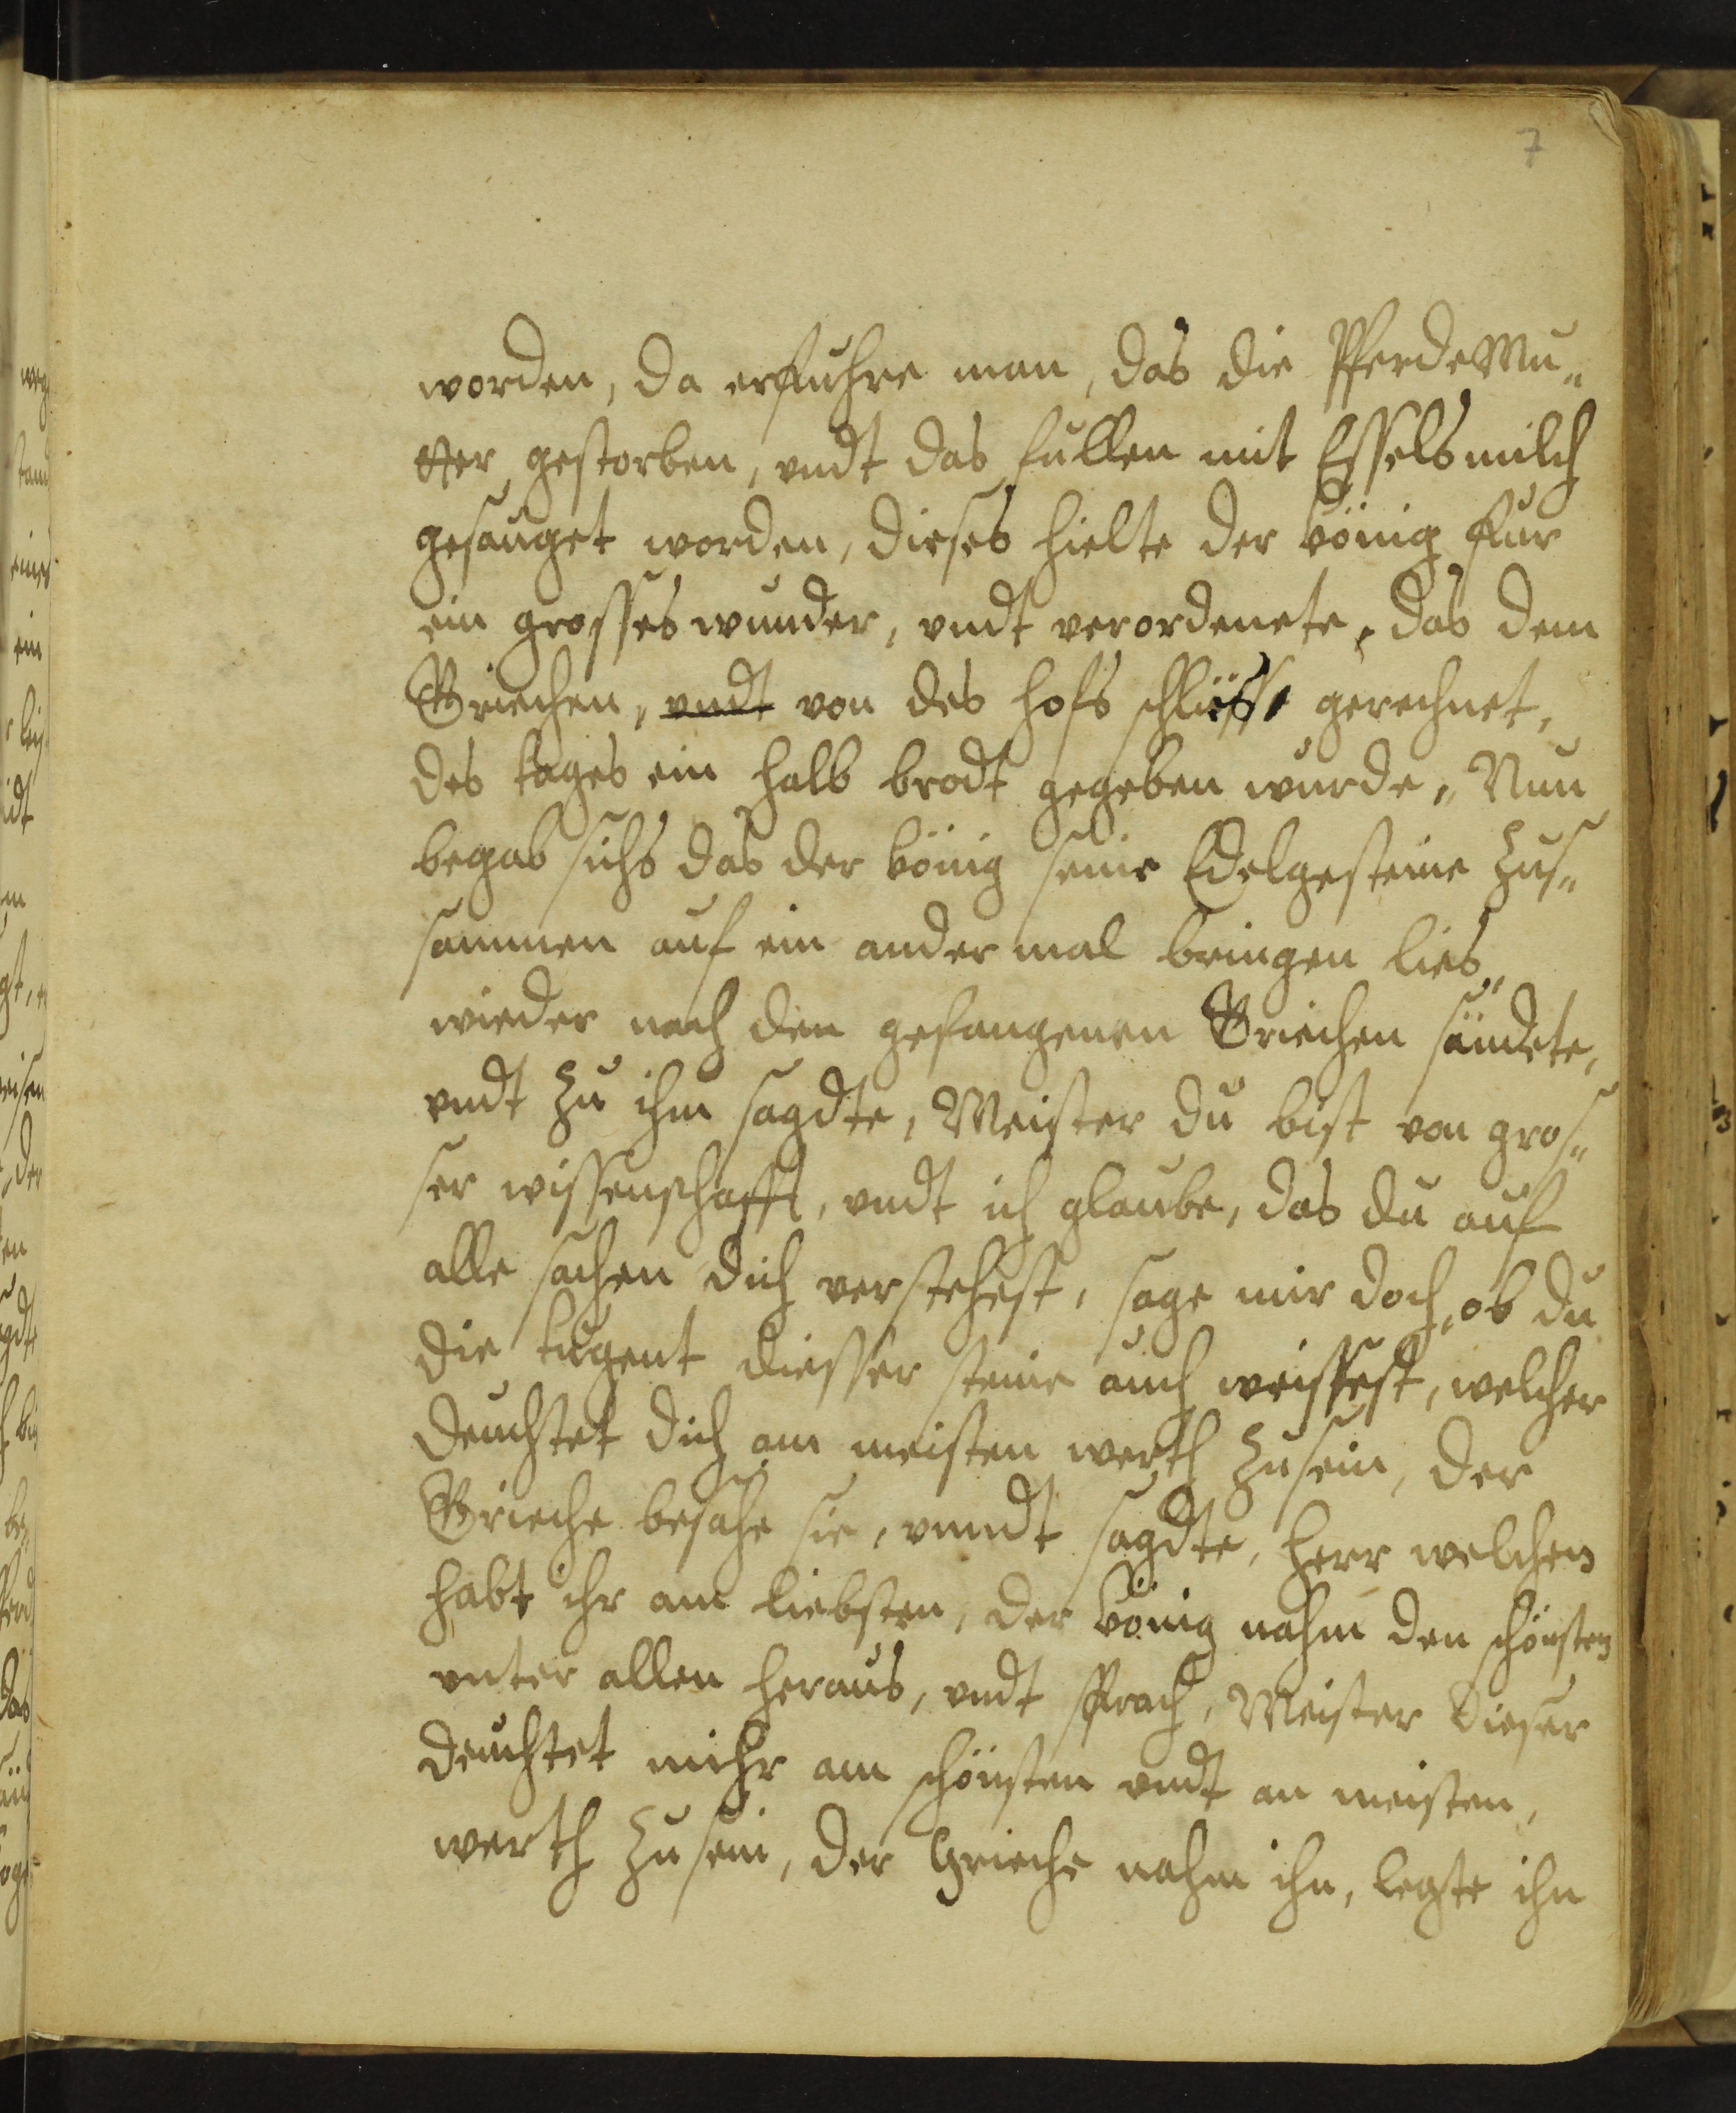 7
worden, da erfuhre man, das die PferdeMu„
tter gestorben, vndt das fullen mit Esselsmilch
gesauget worden, dieses hielte der könig fur
ein grosses wunder, vndt verordenete, das dem
Griechen, vndt von des hofs schlüsse gerechnet,
des tages ein halb brodt gegeben wurde, Nun
begab sichs das der könig seine Edelgesteine zus„
sammen auf ein ander mal bringen lies,
wieder nach den gefangenen Griechen sändete,
vndt zu ihm sagdte, Meister du bist von gros„
ser wissenschafft, vndt ich glaube, das du auf
alle sachen dich verstehest, sage mir doch, ob du
die tugent diesser steine auch weissest, welcher
deuchtet dich am meisten werth zu sein, der
Grieche besahe sie, vnndt sagdte, Herr welchen
habt ihr am liebsten, der könig nahm den schönsten
vnter allen heraus, vndt sprach, Meister dieser
deuchtet mihr am schönsten vndt an meisten,
werth zu sein, der Grieche nahm ihn, legte ihn